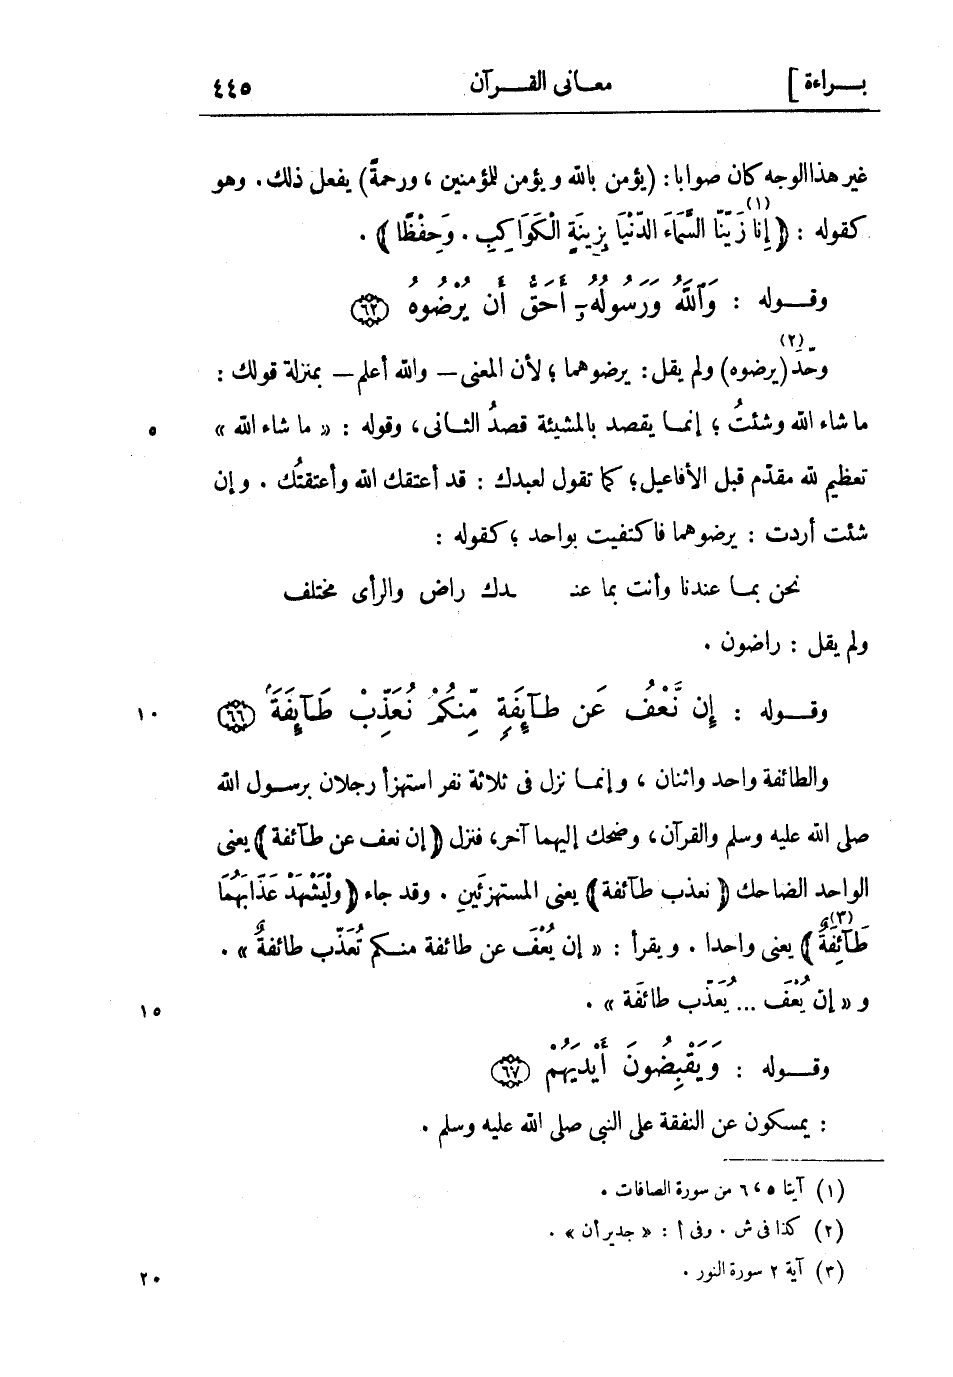 براءة ] معانى القرآن ٤٤٥
غير هذا الوجه كان صوابا : (يؤمن بالله ويؤمن للمؤمنين ، ورحمةً) يفعل ذلك . وهو
كقوله : ﴿ إِنَّا زَيَّنَّا السَّمَاءَ الدُّنْيَا بِزِينَةٍ الْكَوَاكِبِ . وَحِفْظًا ﴾ (١) .
وقوله : وَٱللَّهُ وَرَسُولُهُۥٓ أَحَقُّ أَن يُرْضُوهُ (٦٢)
وحّد (يرضوه) (٢) ولم يقل : يرضوهما ؛ لأن المعنى – والله أعلم – بمنزلة قولك :
ما شاء الله وشئتُ ؛ إنما يقصد بالمشيئة قصدُ الثانى ، وقوله : « ما شاء الله » ٥
تعظيم لله مقدّم قبل الأفاعيل ؛ كما تقول لعبدك : قد أعتقك الله وأعتقتُك . وإن
شئت أردت : يرضوهما فاكتفيت بواحد ؛ كقوله :
نحن بما عندنا وأنت بما عنـ ـدك راض والرأى مختلف
ولم يقل : راضون .
وقوله : إِن نَّعْفُ عَن طَآئِفَةٍ مِّنكُمْ نُعَذِّبْ طَآئِفَةً (٦٦) ١٠
والطائفة واحد واثنان ، وإنما نزل فى ثلاثة نفر استهزأ رجلان برسول الله
صلى الله عليه وسلم والقرآن ، وضحك إليهما آخر ، فنزل ﴿ إن نعف عن طآئفة ﴾ يعنى
الواحد الضاحك ﴿ نعذب طآئفة ﴾ يعنى المستهزئَين . وقد جاء ﴿ ولْيَشْهَدْ عَذَابَهُمَا
طَآئِفَةٌ ﴾ (٣) يعنى واحدا . ويقرأ : « إن يُعْفَ عن طائفة منكم تُعَذَّب طائفةٌ » .
و « إن يُعْفَ ... يُعَذِّب طائفَة » . ١٥
وقوله : وَيَقْبِضُونَ أَيْدِيَهُمْ (٦٧)
: يمسكون عن النفقة على النبى صلى الله عليه وسلم .
(١) آيتا ٥ ، ٦ من سورة الصافات .
(٢) كذا فى ش . وفى أ : « جدير أن » .
(٣) آية ٢ سورة النور . ٢٠